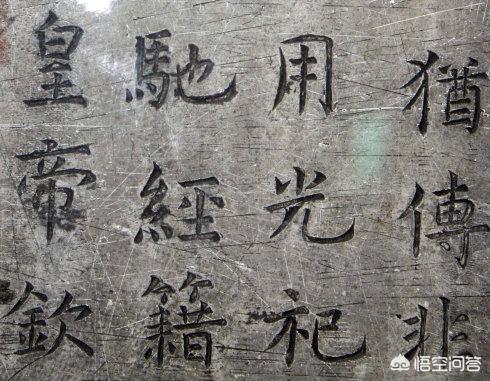 猶傳非
用光祀
馳經籍
皇帝欽
悟空问答